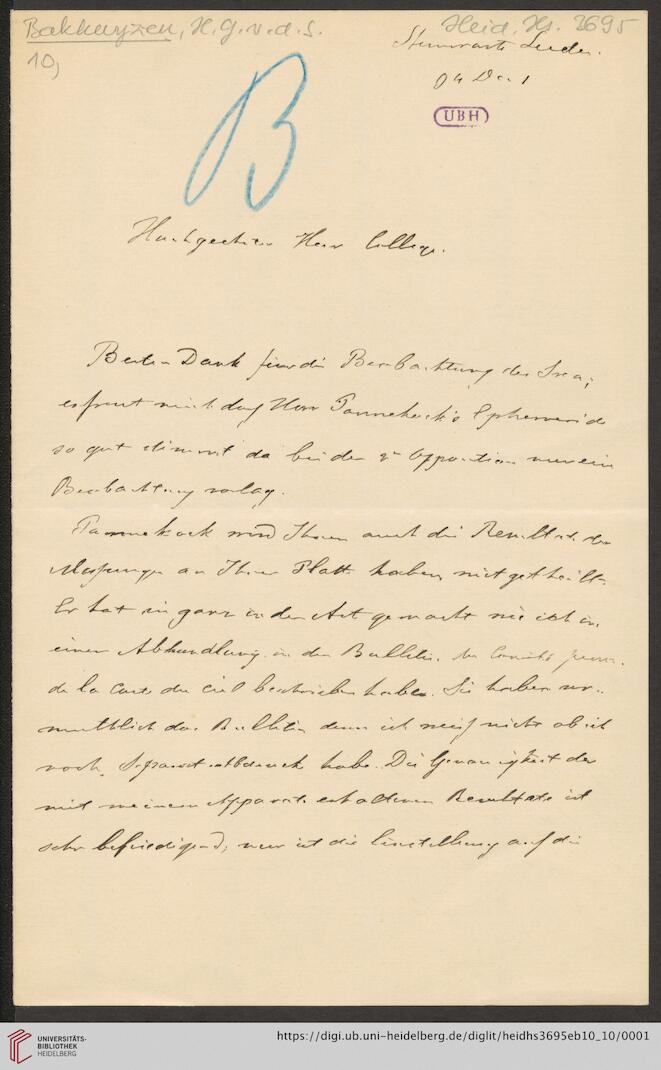 Bakhuyzen, H. G. v. d. S.
Heid. Hs. 3695
10,
Sternwarte Leiden.
04 Dec 1
UBH
B
Hochgeehrter Herr College.
Besten Dank für die Beobachtung der Svea;
es freut mich dass Herr Pannekoek's Ephemeride
so gut stimmt da bei der 2n Opposition nur ein
Beobachtung vorlag.
Pannekoek wird Ihnen auch die Resultate der
Messungen an Ihrer Platte haben mitgetheilt.
Er hat sie ganz in der Art gemacht wie ich in
einer Abhandlung in den Bulletin du Comité perm.
de la Carte du ciel beschrieben habe. Sie haben ver-
muthlich das Bulletin denn ich weiss nicht ob ich
noch Separatabdruck habe. Die Genauigkeit der
mit meinem Apparate erhaltenen Resultate ist
sehr befriedigend; nur ist die Einstellung auf die
UNIVERSITÄTS-
BIBLIOTHEK
HEIDELBERG
https://digi.ub.uni-heidelberg.de/diglit/heidhs3695eb10_10/0001